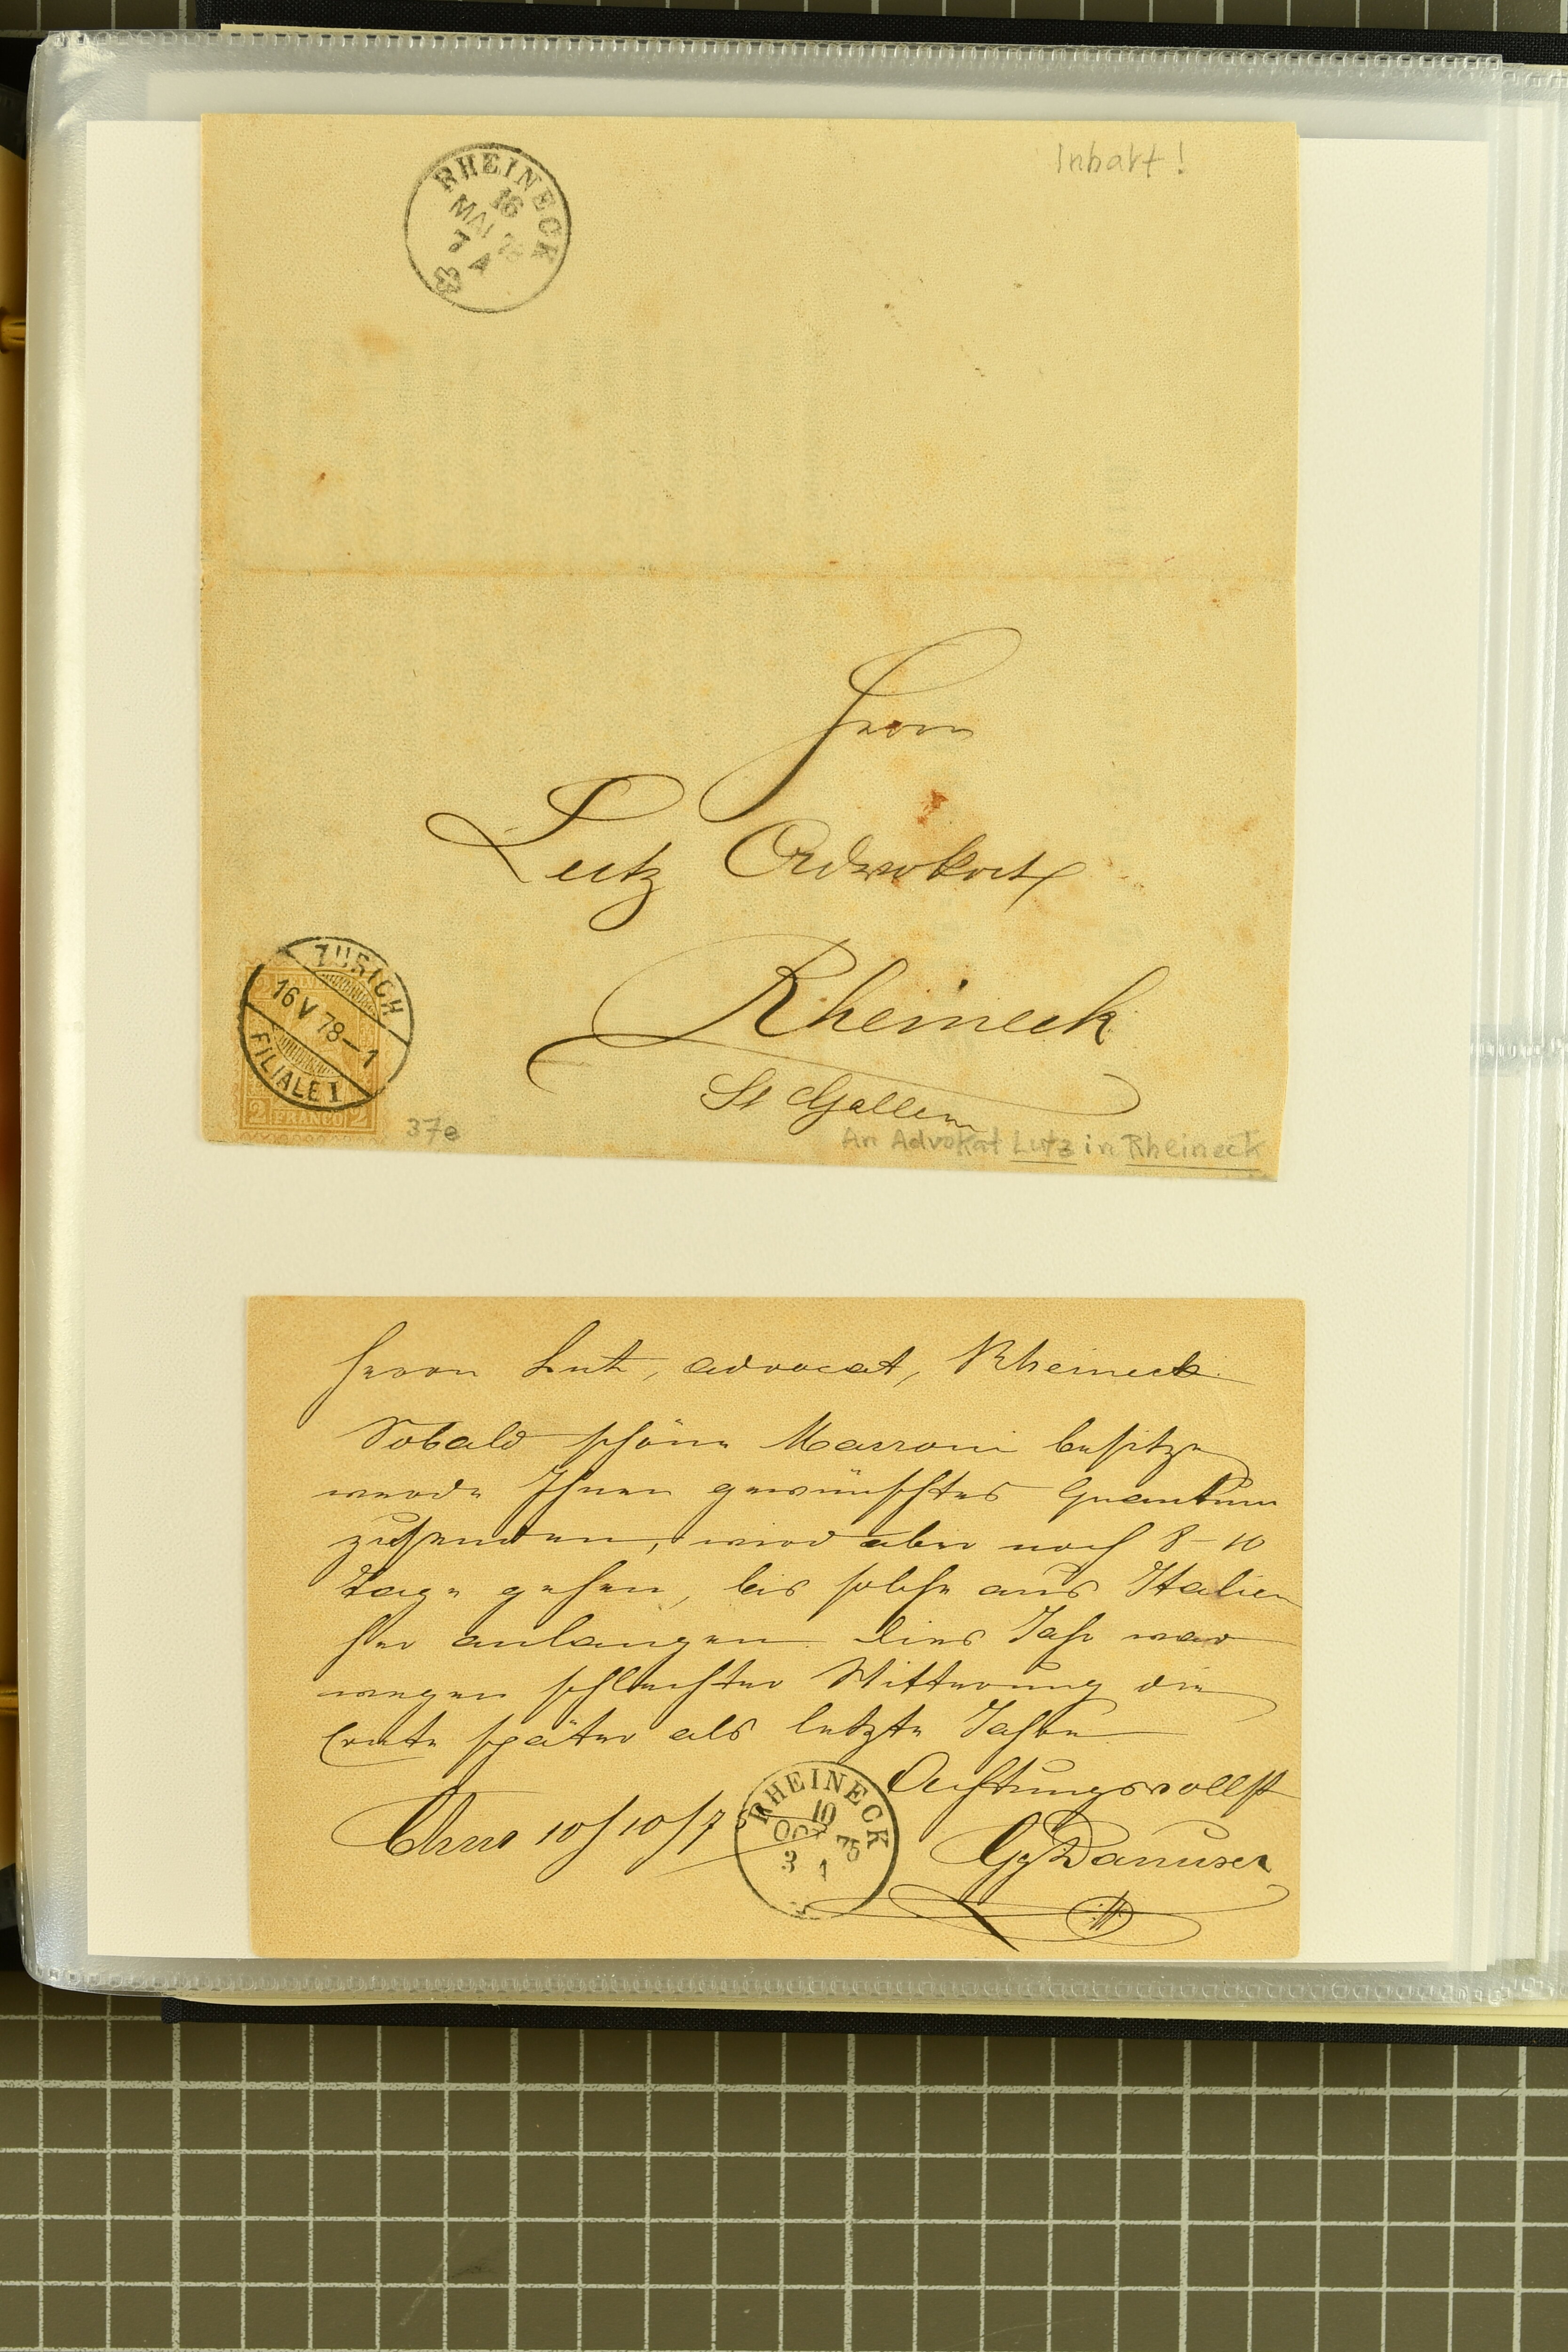 RHEINECK
16
MAI 78
7 A
Inhalt!
Herrn
Lutz Advokat
Rheineck
St Gallen
ZÜRICH
16 V 78–1
FILIALE I
2 FRANCO 2
37e
An Advokat Lutz in Rheineck
Herrn Lutz, advocat, Rheineck.
Sobald schöne Marroni besitze
werde Ihnen gewünschtes Quantum
zusenden, wird aber noch 8–10
Tage gehen, bis solche aus Italien
her anlangen. Dies Jahr war
wegen schlechter Witterung die
Ernte später als letzte Jahre.
Achtungsvollst
Chur 10/10/75
Gg Danuser
RHEINECK
10
OCT 75
3 1